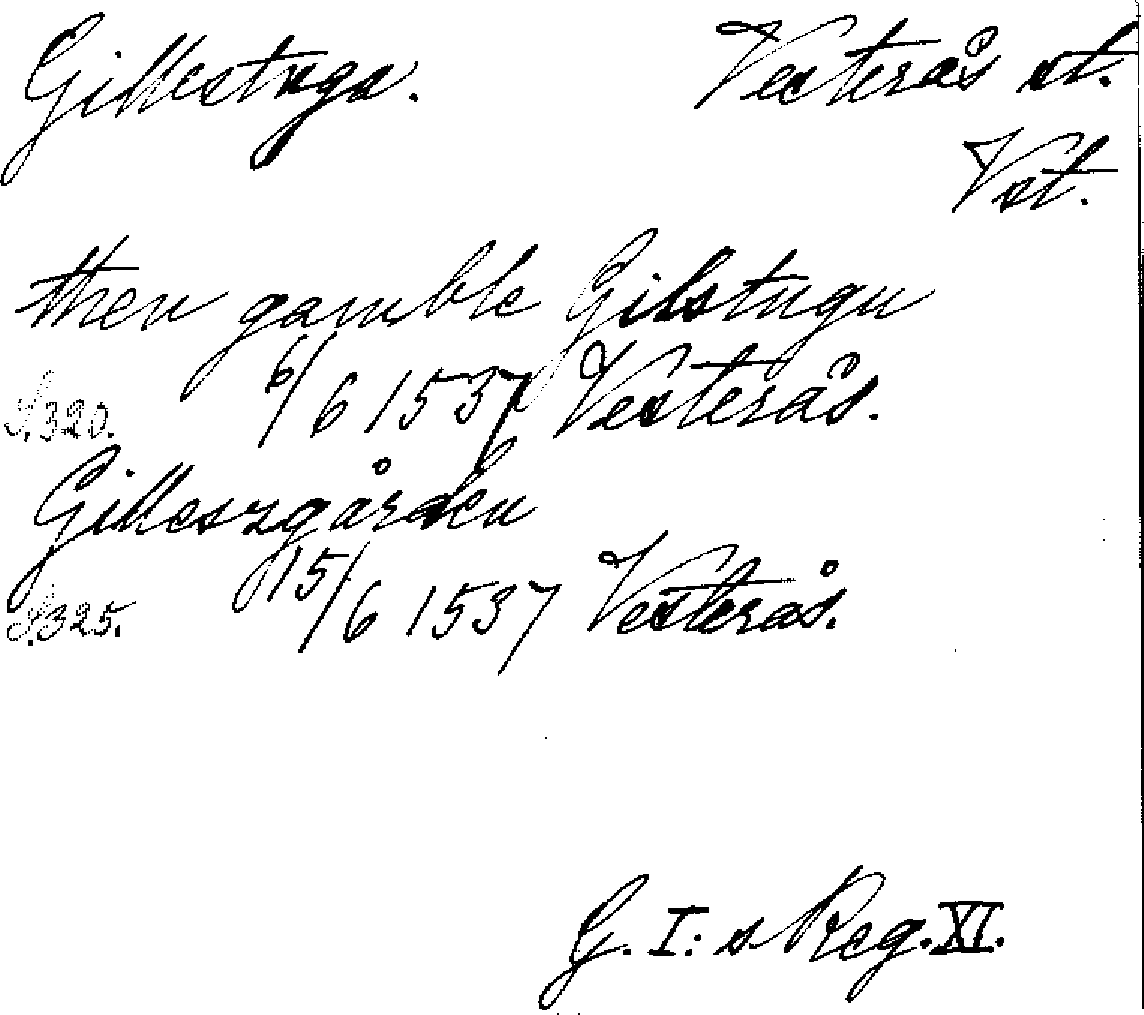 Gillestuga. Vesterås st.
Vst.
then gamble Gilstugu
S. 320. 6/6 1537 Vesterås.
Gilleszgården
S. 325. 15/6 1537 Vesterås.
G. I:s Reg. XI.